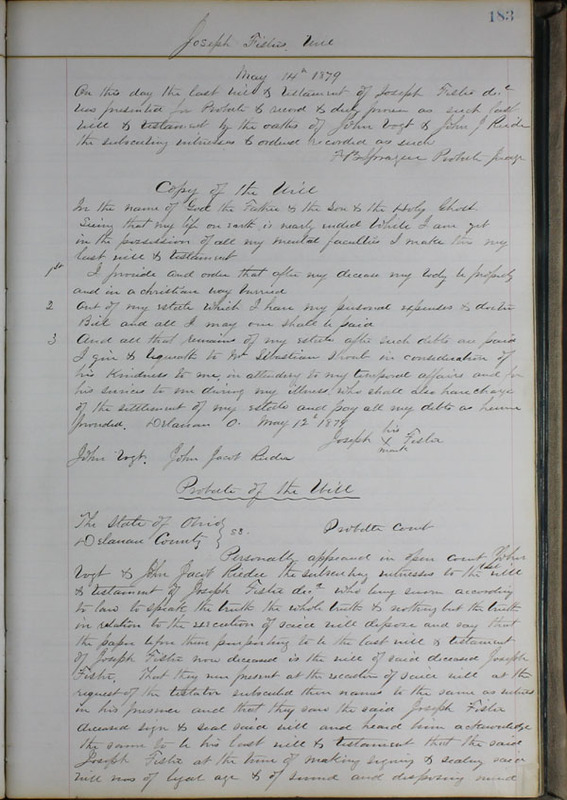 183
Joseph Fisher Will
May 14th 1879
On this day the last will & testament of Joseph Fisher dec.d
was presented for Probate & record & duly proven as such last
will & testament by the oaths of John Vogt & John J Rieder
the subscribing witnesses & ordered recorded as such
F B Sprague Probate Judge
Copy of the Will
In the name of God the Father & the Son & the Holy Ghost
Seeing that my life on earth is nearly ended While I am yet
in the possession of all my mental faculties I make this my
last will & testament
1st I provide and order that after my decease my body be properly
and in a christian way burried
2 Out of my estate which I have my personal expenses & doctor
Bill and all I may owe shall be paid
3 And all that remains of my estate after such debts are paid
I give & bequeath to Mr Sebastian in consideration of
his Kindness to me, in attending to my temporal affairs and for
his services to me during my illness, who shall also have charge
of the settlement of my estate and pay all my debts as herein
provided. Delaware O. May 12th 1879
Joseph his X mark Fisher
John Vogt. John Jacob Rieder
Probate of the Will
The State of Ohio
Delaware County } ss. Probate Court
Personally appeared in open court John
Vogt & John Jacob Rieder the subscribing witnesses to the last will
& testament of Joseph Fisher dec.d who being sworn according
to law to speak the truth the whole truth & nothing but the truth
in relation to the execution of said will depose and say that
the paper before them purporting to be the last will & testament
of Joseph Fisher now deceased is the will of said deceased Joseph
Fisher. That they were present at the execution of said will at the
request of the testator subscribed their names to the same as witnesses
in his presence and that they saw the said Joseph Fisher
deceased sign & seal said will and heard him acknowledge
the same to be his last will & testament that the said
Joseph Fisher at the time of making signing & sealing said
will was of legal age & of sound and disposing mind